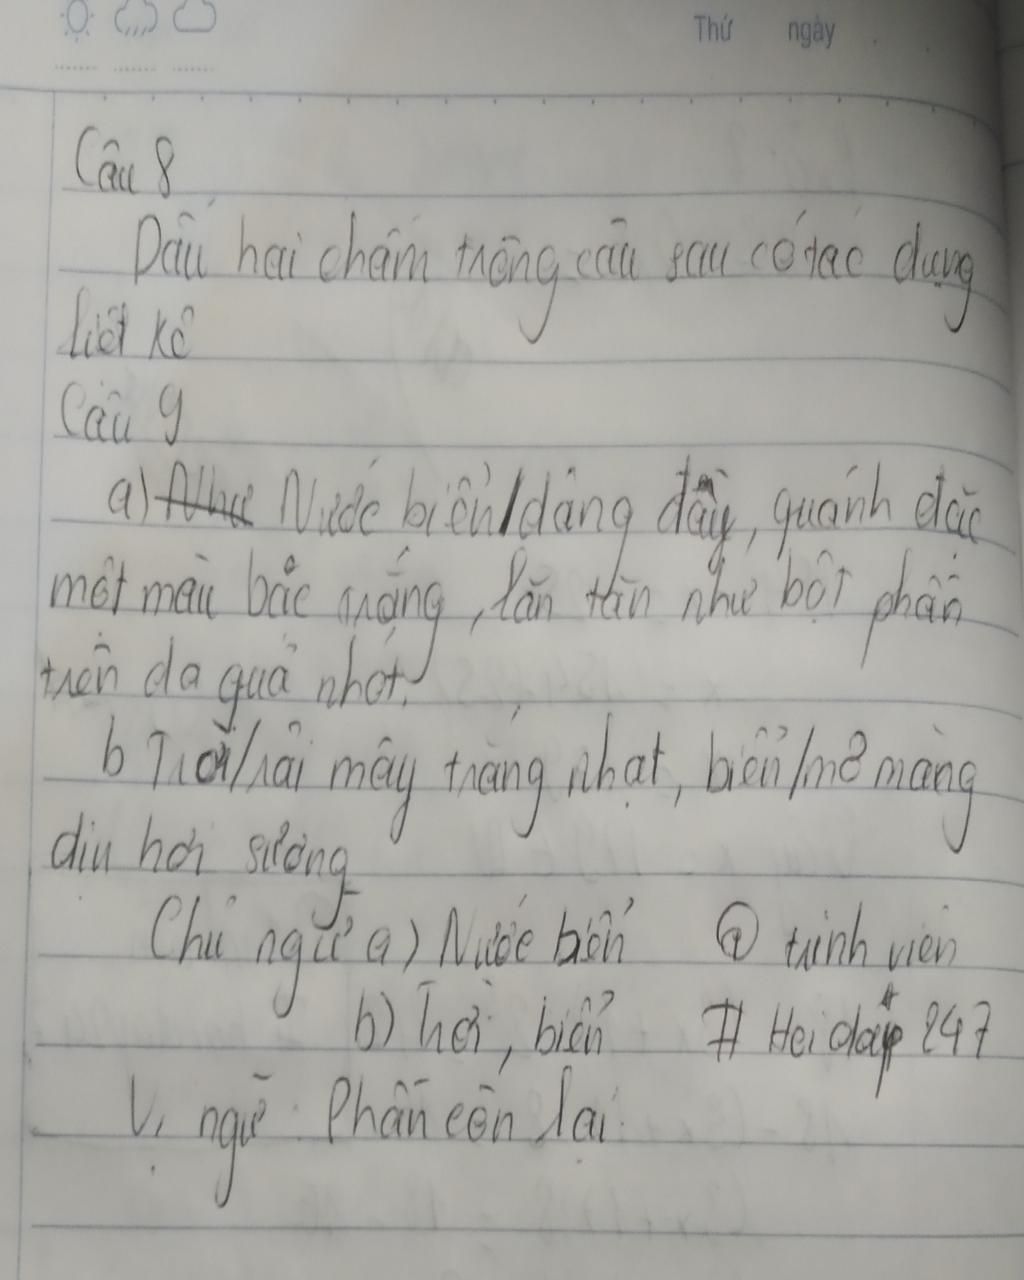 Thứ ngày
Câu 8
Dấu hai chấm trong câu sau có tác dụng
liệt kê
Câu 9
a) Như Nước biển/dâng đầy, quánh đặc
một màu bạc trắng, lăn tăn như bột phấn
trên da quả nhót.
b Trời/rải mây trắng nhạt, biển/mơ màng
dịu hơi sương
Chủ ngữ a) Nước biển @ trinh vien
b) Trời, biển # Hoidap 247
Vị ngữ: Phần còn lại.